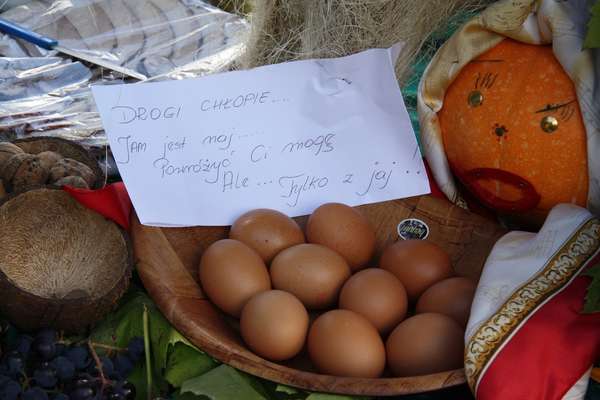 DROGI CHŁOPIE...
JAM JEST NAJ.....
POWRÓŻYĆ CI MOGĘ
ALE... TYLKO Z JAJ...!